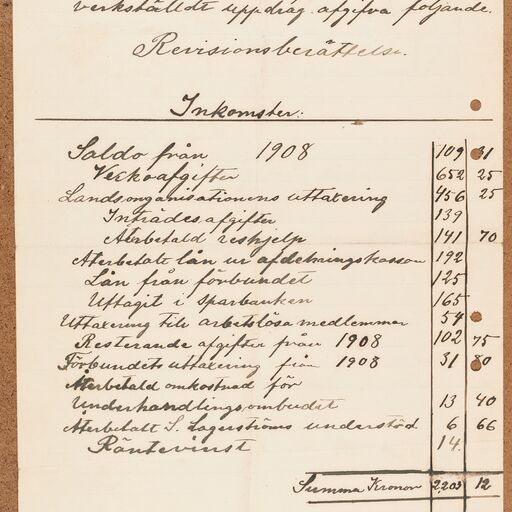 verkställdt uppdrag afgifva följande.
Revisionsberättelse.
Inkomster:
Saldo från 1908 109 31
Veckoafgifter 652 25
Landsorganisationens uttaxering 456 25
Inträdes afgifter 139
Återbetald reshjelp 141 70
Återbetalt lån ur afdelningskassan 192
Lån från förbundet 125
Uttagit i sparbanken 165
Uttaxering till arbetslösa medlemmar 54
Resterande afgifter från 1908 102 75
Förbundets uttaxering från 1908 31 80
Återbetald omkostnad för
Underhandlingsombudet 13 40
Återbetalt S. Lagerströms understöd 6 66
Räntevinst 14
Summa Kronor 2,203 12